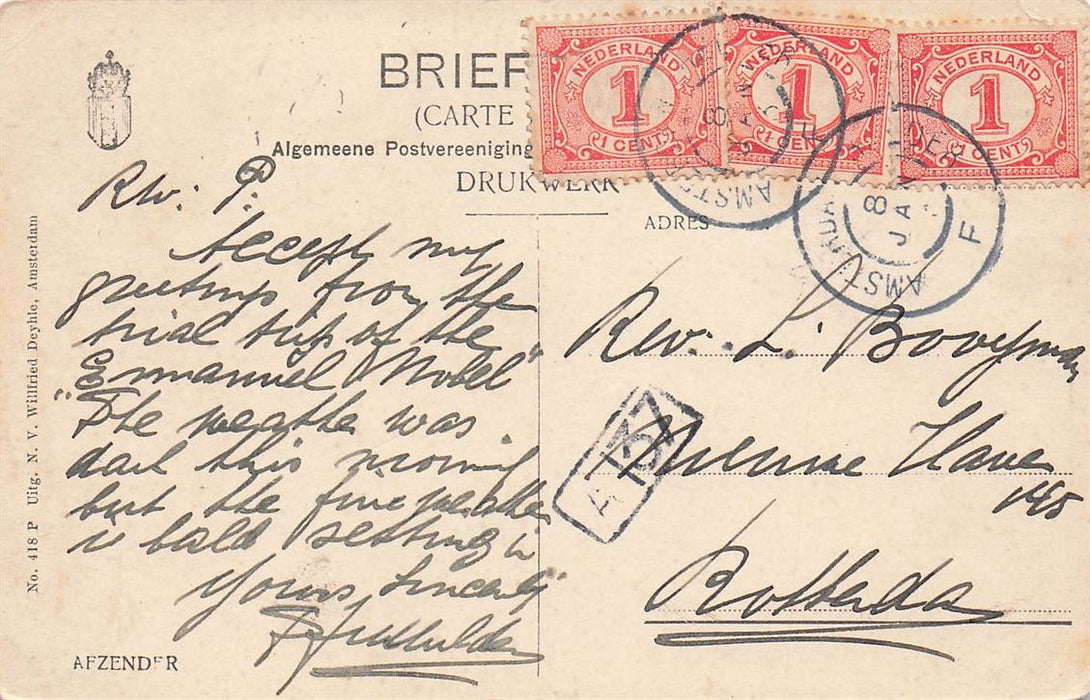 BRIEF
(CARTE
Algemeene Postvereeniging
DRUKWERK
NEDERLAND
1
1 CENT
NEDERLAND
1
1 CENT
NEDERLAND
1
1 CENT
AMST
8 JAN
F
AMSTERDAM
8 JAN
F
ADRES
Rev: P.
Accept my
greetings from the
trial trip of the
"Emmanuel Nobel"
The weather was
dark this morning
but the fine weather
is bald setting in
Yours Sincerely
AFZENDER
Rev. L. Booyman
Nieuwe Haven
145
Rotterdam
A 137
No. 418 P Uitg. N. V. Willfried Deyhle, Amsterdam